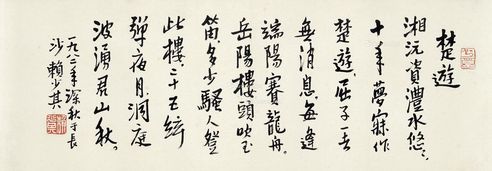 楚遊
湘沅資澧水悠々
十年夢寐作
楚遊。屈子一去
無消息，每逢
端陽賽龍舟。
岳陽樓頭吹玉
笛，多少騷人登
此樓。二十五絃
彈夜月，洞庭
波湧君山秋。
一九八二年深秋于長
沙 賴少其